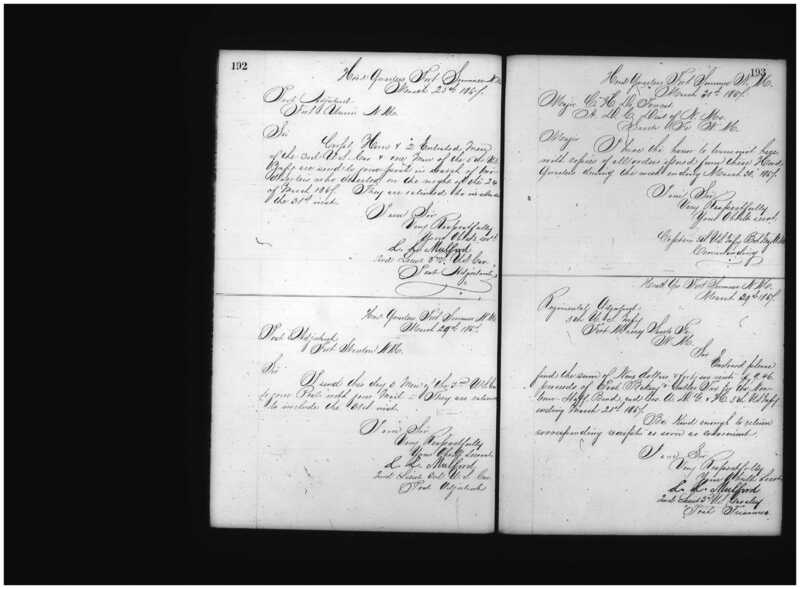 192
Head Quarters Fort Sumner N.M.
March 25th 1867.
Post Adjutant
Fort Union N. Mo.
Sir
Corpl. & 2 Enlisted Men
of the 3rd U.S. Cav & one Man of the 5th U.S.
Infty are send to your post in search of two
who deserted on the night of the 24
of March 1867. They are rationed to include
the 31st inst.
I am Sir
Very Respectfully
Your Obedt Servt
L. L. Mulford
2nd Lieut 3rd U.S. Cav.
Post Adjutant
Head Quarters Fort Sumner N.M.
March 29th 1867.
Post Adjutant
Fort Stanton N.Mo.
Sir
I send this day 3 Men of the 3rd U.S. Cav
to your Post with your Mail = They are rationed
to include the inst.
I am Sir
Very Respectfully
Your Obedt Servant
L. L. Mulford
2nd Lieut 3rd U.S. Cav
Post Adjutant
193
Head Quarters Fort Sumner N. M.
March 31st 1867.
Major C. H. De Forest
A. A. A. G. Dist of N. Mo.
Santa Fe N. M.
Major I have the honor to transmit here
with copies of all orders issued from these Head
Quarters during the week ending March 30, 1867.
I am Sir
Very Respectfully
Your Obedt Servt.
Captain 5th U.S. Infty Bvt Maj
Commanding
Head Qrs Fort Sumner N. Mo.
March 29th 1867.
Regimental Adjutant
5th U.S. Infty
Fort Marcy Santa Fe
N. M.
Sir
Enclosed please
find the sum of Nine dollars & forty six cents $9.46
proceeds of Post Bakery & Tax for the Non
Com Staff Band and Co. 5th U.S. Infty
ending March 1867.
Be kind enough to return
corresponding receipts as soon as convenient.
I am Sir
Very Respectfully
Your Obedt Servt
L. L. Mulford
2nd Lieut 3rd U.S. Cavalry
Post Treasurer